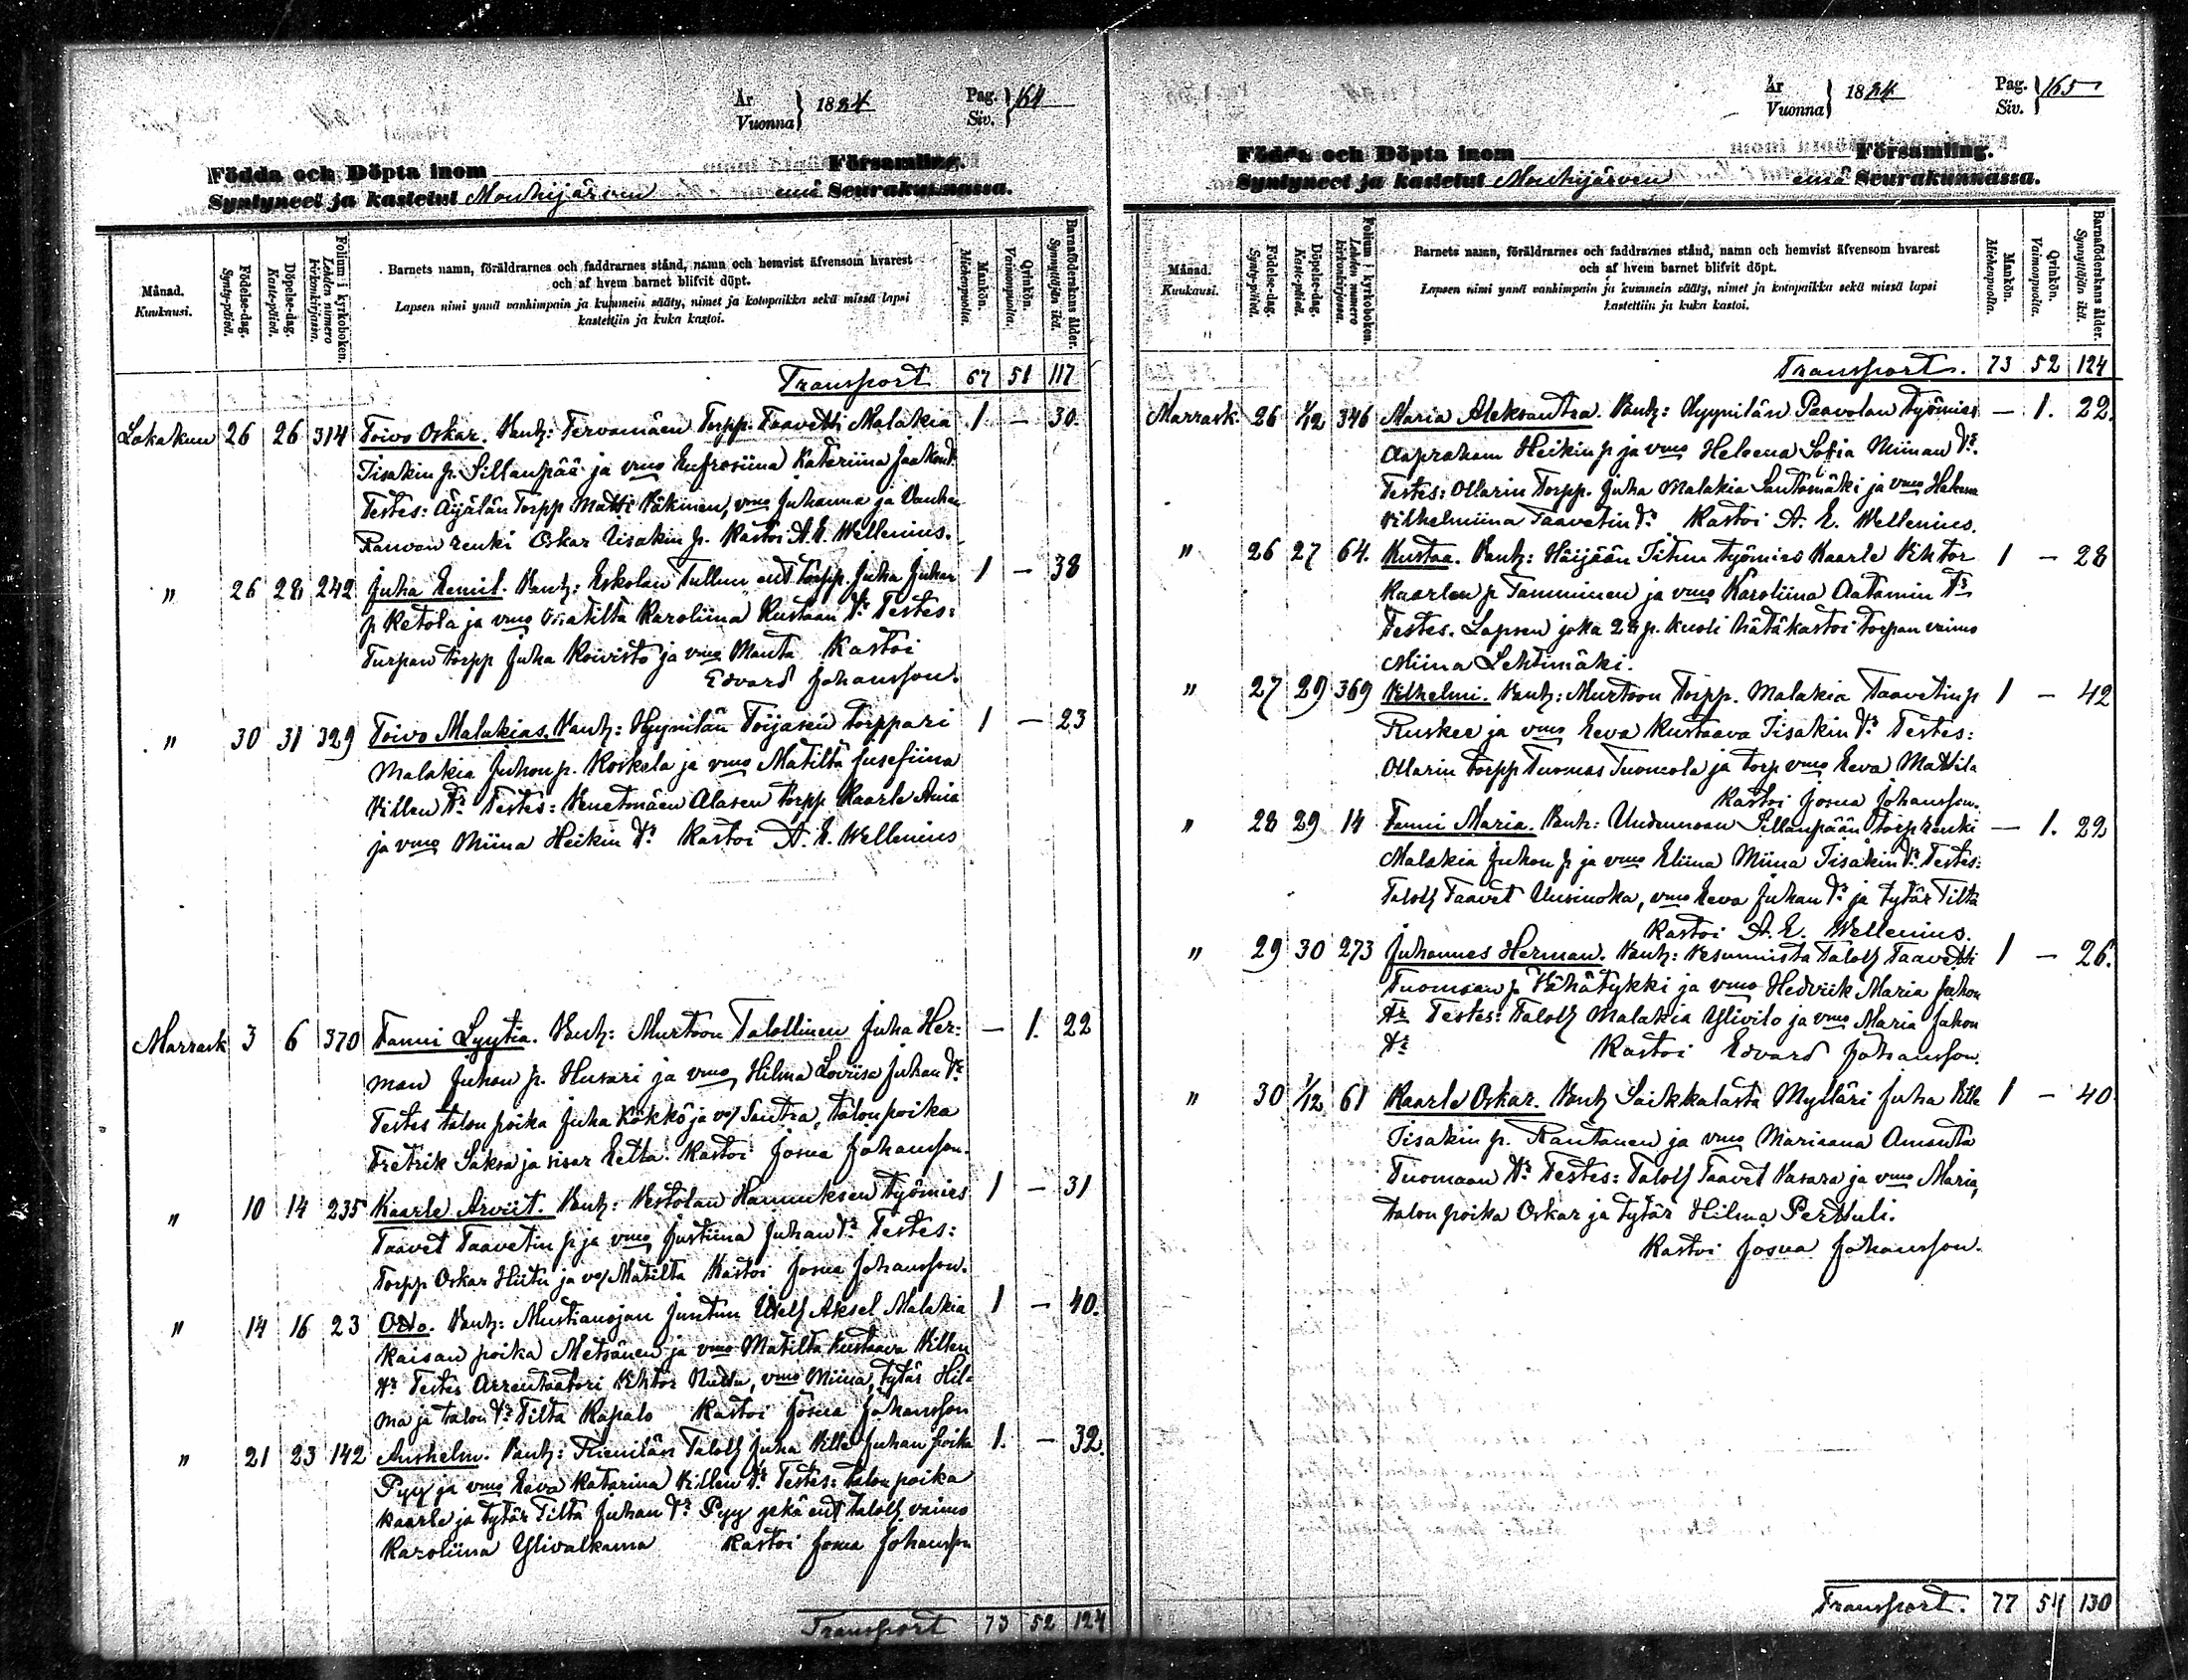 År
Vuonna } 1884 Pag.
Siv. } 164
Födda och Döpta inom Församling.
Syntyneet ja kastetut Mouhijärven emä Seurakunnassa.
Månad.
Kuukausi.
Födelse-dag.
Synty-päivä.
Döpelse-dag.
Kaste-päivä.
Folium i kyrkoboken.
Lehden numero
kirkonkirjassa.
Barnets namn, föräldrarnes och faddrarnes stånd, namn och hemvist äfvensom hvarest
och af hvem barnet blifvit döpt.
Lapsen nimi ynnä vanhimpain ja kummein sääty, nimet ja kotopaikka sekä missä lapsi
kastettiin ja kuka kastoi.
Mankön.
Miehenpuolta.
Qvinkön.
Vaimonpuolta.
Barnaföderskans ålder.
Synnyttäjän ikä.
Transport 67 51 117
Lokakuu 26 26 314 Toivo Oskar. Vanh: Tervamäen Torpp. Taavetti Malakia 1 — 30.
Iisakin p. Sillanpää ja vmo Eufrosiina Katariina Jaakon tr.
Testes: Äijälän Torpp Matti Väkinen, vmo Juhanna ja Vanhan
renki Oskar Iisakin p. Kastoi A. E. Wellenius.
" 26 28 242 Juha Eemil. Vanh: Eskolan Tullun ent torpp. Juha Juhan 1 — 38
p Ketola ja vmo Matilta Karoliina Kustaan tr Testes:
Turpan torpp Juha Koivisto ja vmo Manta Kastoi
Edvard Johansson.
" 30 31 329 Toivo Malakias. Vanh: Hyynilän Toijasen torppari 1 — 23
Malakia Juhon p. Koskela ja vmo Matilta Jusefiina
Villen tr Testes: Alasen torpp Kaarle
ja vmo Miina Heikin tr Kastoi A. E. Wellenius
Marrask 3 6 370 Fanni Lyytia. Vanh: Murtoon Talollinen Juha Her= — 1. 22
man Juhon p. Husari ja vmo Hilma Loviisa Juhan tr
Testes talon poika Juha Kökkö ja vo/ Santra, talon poika
Fretrik Saksa ja sisar Eetla. Kastoi Josua Johansson.
" 10 14 235 Kaarle Arviit. Vanh: Vestolan Hannuksen työmies 1 — 31
Taavet Taavetin p ja vmo Justiina Juhan tr Testes:
Torpp Oskar Hiitu ja vo/ Matilta Kastoi Josua Johansson.
" 14 16 23 Otto. Vanh: Mustianojan Juntun Aksel Malakia 1 — 40.
Kaisan poika Metsänen ja vmo Matilta Kustaava Villen
tr Testes Arrentaatori Vihtor, vmo Miina, tytär Hil=
ma ja talon tr Tilta Rapalo Kastoi Josua Johansson
" 21 23 142 Anshelm. Vanh: Talol/ Juha Ville Juhan poika 1. — 32.
Pyy ja vmo Eeva Katarina Villen tr Testes: talon poika
Kaarle ja tytär Tilta Juhan tr Pyy sekä ent talol/ vaimo
Karoliina Ylivalkama Kastoi Josua Johansson
Transport 73 52 124
År
Vuonna } 1884 Pag.
Siv. } 165
Födda och Döpta inom Församling.
Syntyneet ja kastetut Mouhijärven emä Seurakunnassa.
Månad.
Kuukausi.
Födelse-dag.
Synty-päivä.
Döpelse-dag.
Kaste-päivä.
Folium i kyrkoboken.
Lehden numero
kirkonkirjassa.
Barnets namn, föräldrarnes och faddrarnes stånd, namn och hemvist äfvensom hvarest
och af hvem barnet blifvit döpt.
Lapsen nimi ynnä vanhimpain ja kummein sääty, nimet ja kotopaikka sekä missä lapsi
kastettiin ja kuka kastoi.
Mankön.
Miehenpuolta.
Qvinkön.
Vaimonpuolta.
Barnaföderskans ålder.
Synnyttäjän ikä.
Transport. 73 52 124
Marrask. 26 1/12 346 Maria Aleksantra. Vanh: Hyynilän Paavolan työmies — 1. 22.
Aapraham Heikin p ja vmo Heleena Sofia Niiman tr.
Testes: Ollarin Torpp. Juha Malakia Santamäki ja vmo
Vilhelmiina Taavetin tr Kastoi A. E. Wellenius.
" 26 27 64. Kustaa. Vanh: Häijään työmies Kaarle Vihtor 1 — 28
Kaarlen p Tamminen ja vmo Karoliina Aatamin tr
Testes. Lapsen joka 28 p. kuoli hätäkastoi torpan vaimo
Miina Lehtimäki.
" 27 29 369 Vilhelmi. Vanh: Murtoon Torpp. Malakia Taavetin p 1 — 42
Ruskee ja vmo Eeva Kustaava Iisakin tr Testes:
Ollarin torpp Tuomas Tuomola ja torp vmo Eeva Mattila
Kastoi Josua Johansson.
" 28 29 14 Fanni Maria. Vanh: Sillanpään torp renki — 1. 22
Malakia Juhon p ja vmo Eliina Miina Iisakin tr. Testes:
Talol/ Taavet Uusinoka, vmo Eeva Juhan tr ja tytär Tilta
Kastoi A. E. Wellenius.
" 29 30 273 Juhannes Herman. Vanh: Vesunnista Talol/ Taavetti 1 — 26.
Tuomaan p Vähätykki ja vmo Hedviik Maria Juhon
tr Testes: Talol/ Malakia Ylivilo ja vmo Maria Juhon
tr Kastoi Edvard Johansson.
" 30 1/12 61 Kaarle Oskar. Vanh Saikkalasta Mylläri Juha Ville 1 — 40
Iisakin p. Rautanen ja vmo Mariaana Amanta
Tuomaan tr Testes: Talol/ Taavet Vasara ja vmo Maria,
talon poika Oskar ja tytär Hilma Perttuli.
Kastoi Josua Johansson.
Transport. 77 54 130